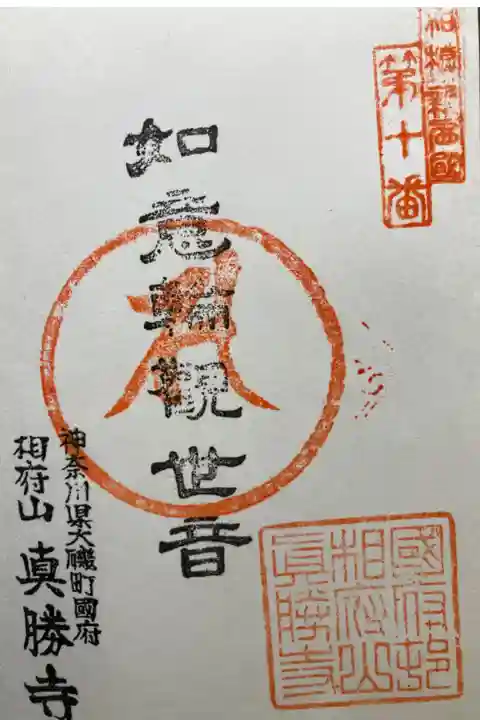 相模新西國
第十番
如意輪觀世音
神奈川県大磯町國府
相府山 眞勝寺
國府邨
相府山
眞勝寺